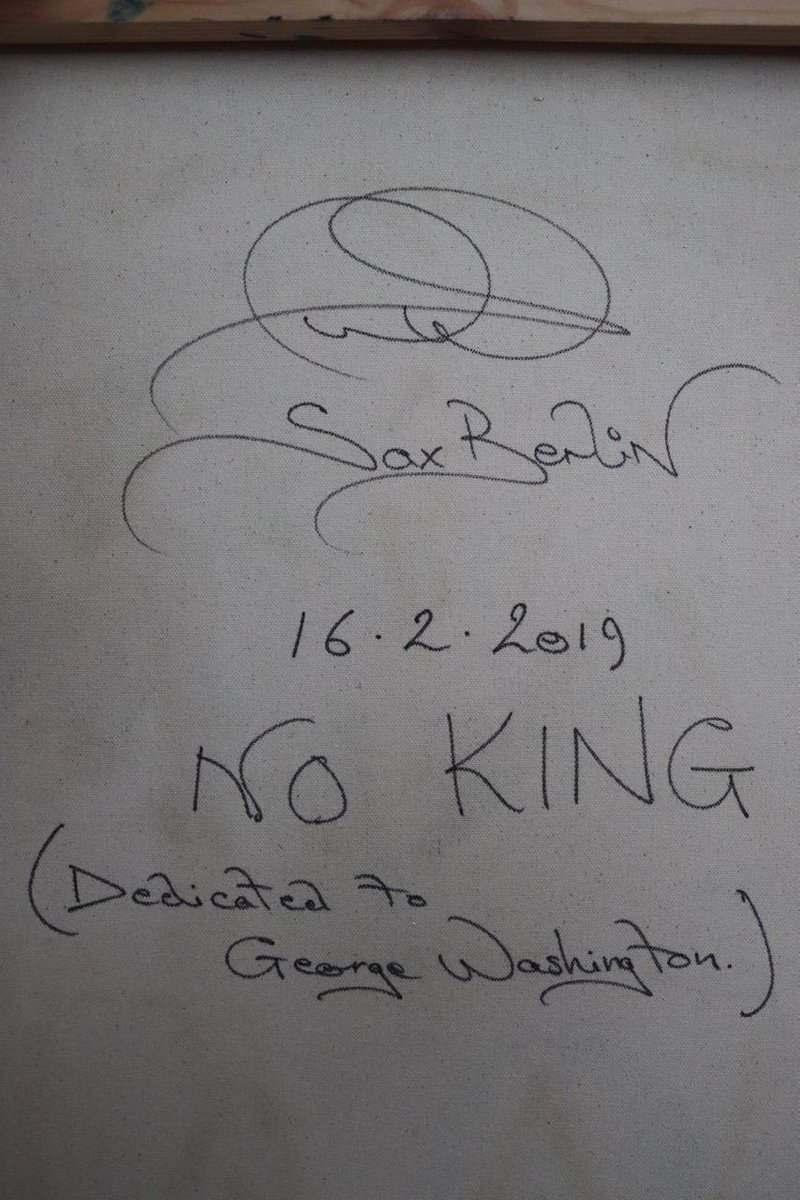 Sax Berlin
16.2.2019
NO KING
(Dedicated to
George Washington.)